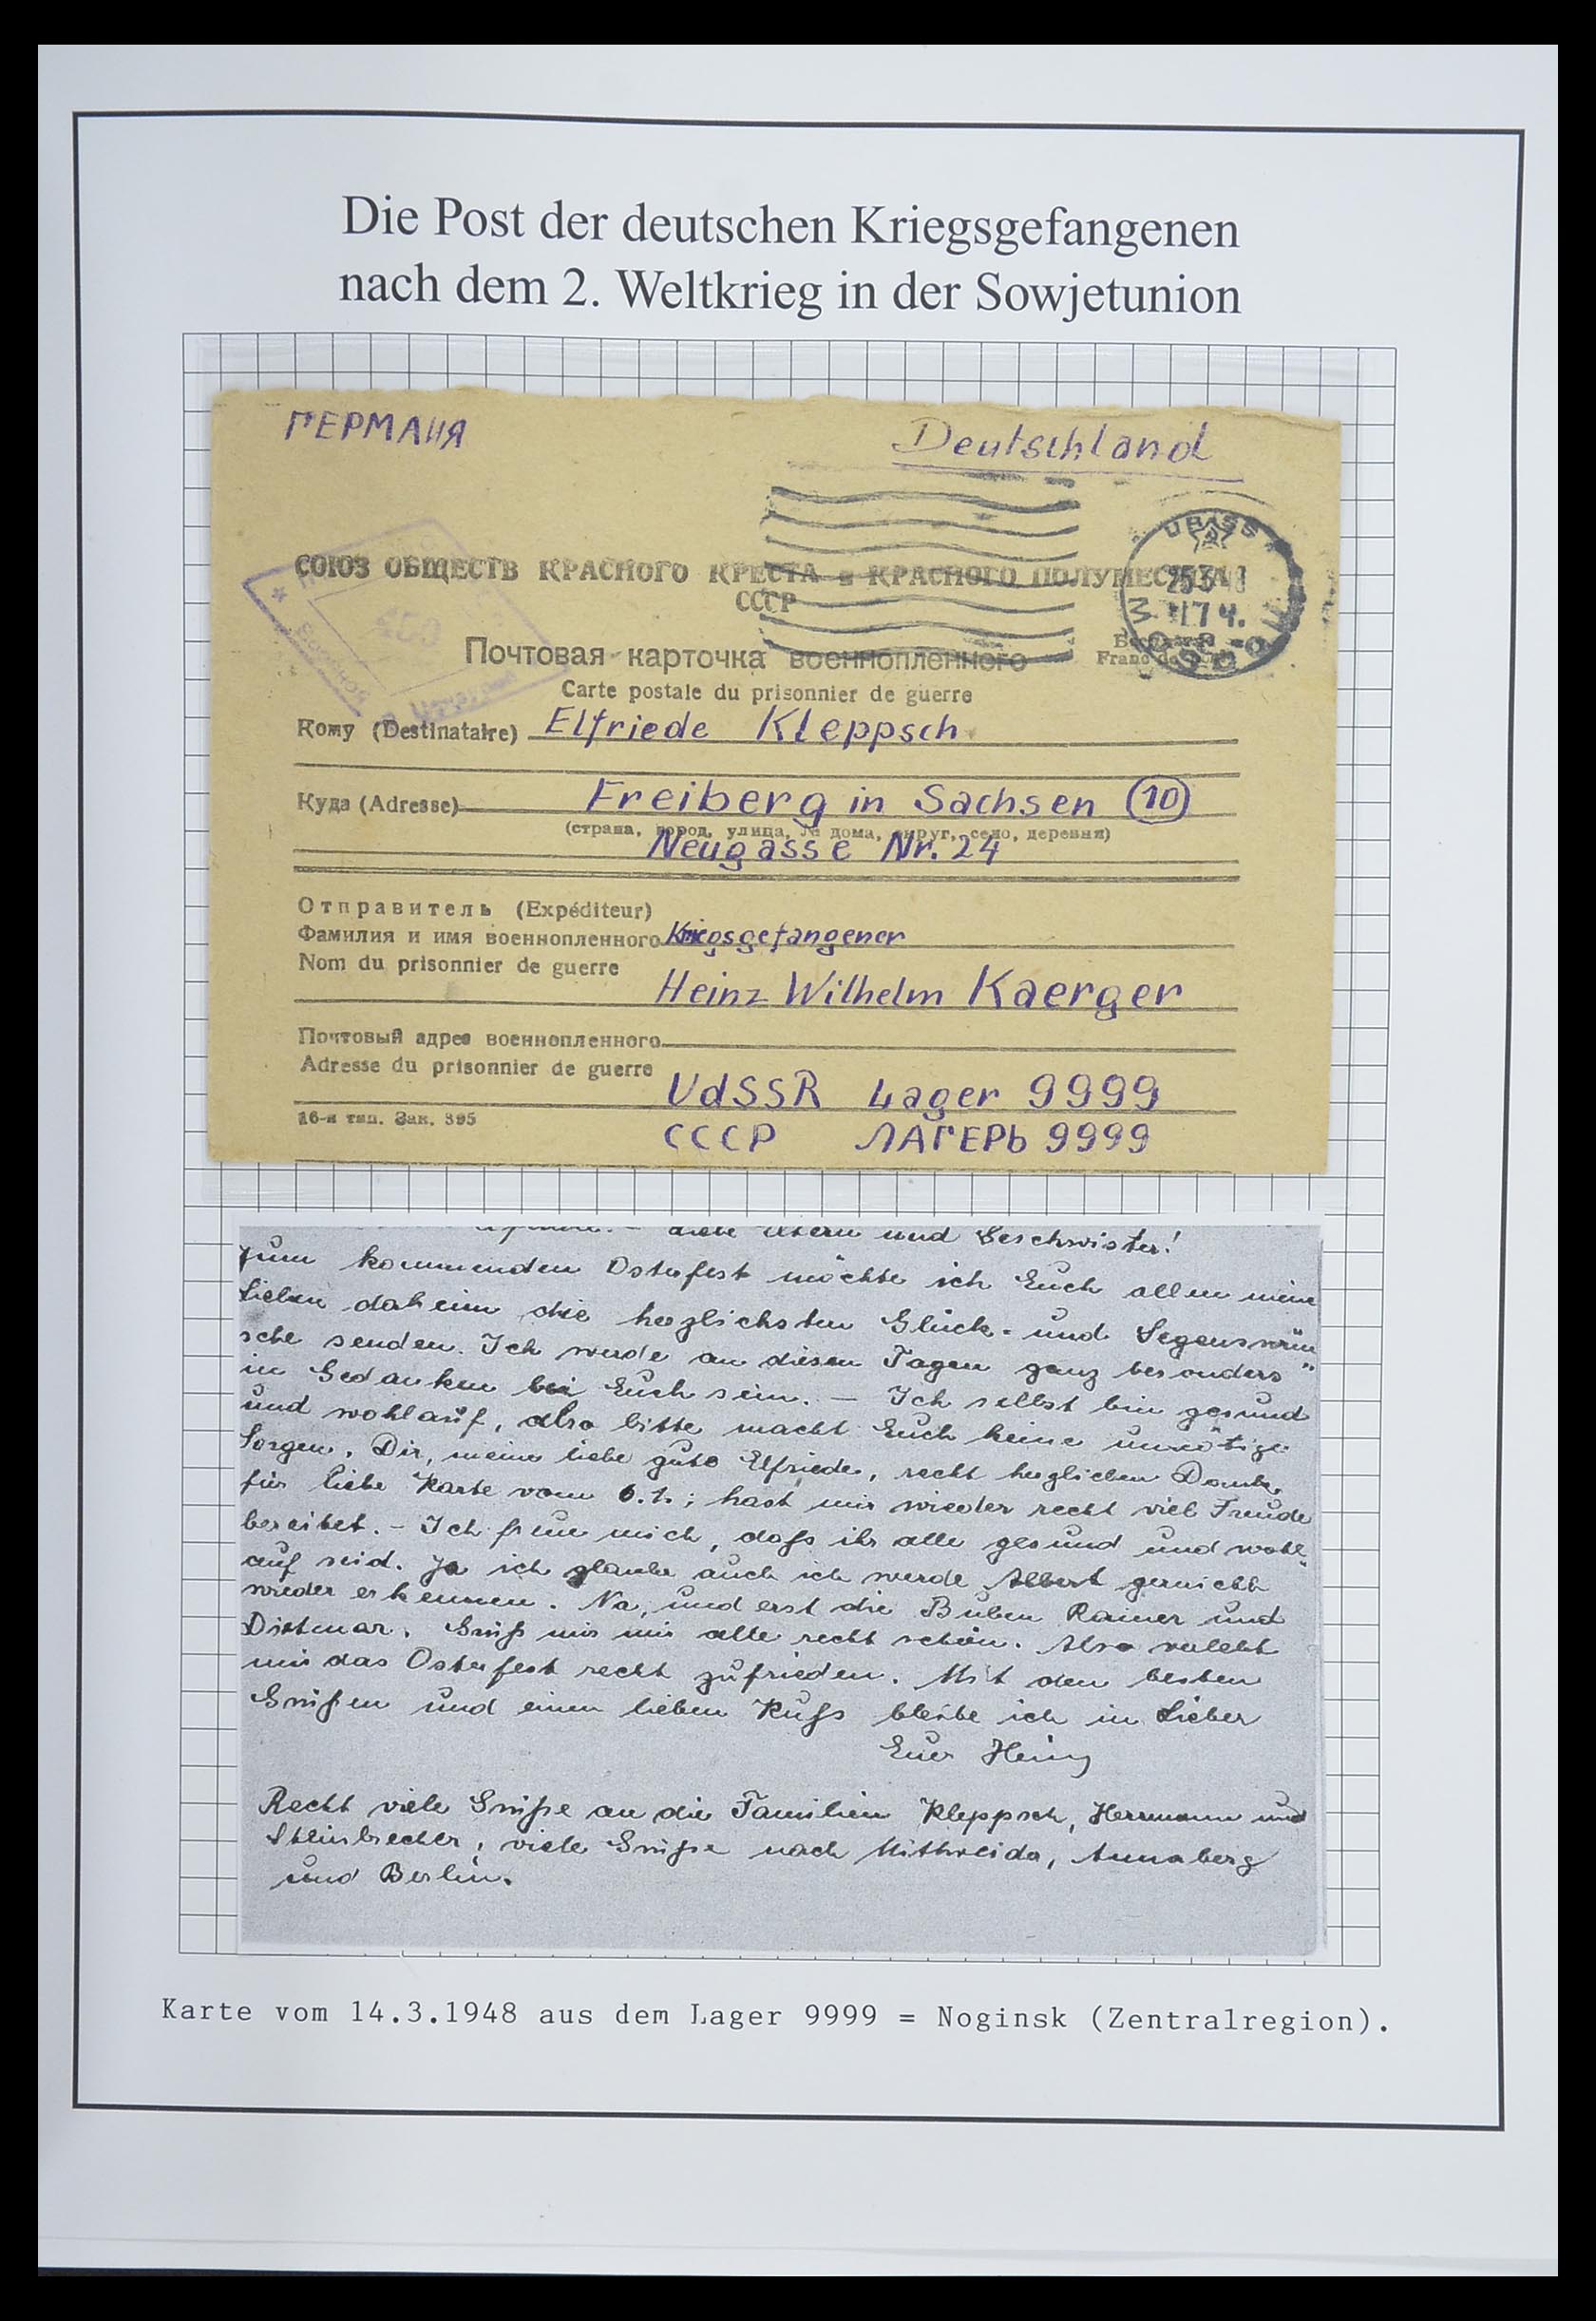 Die Post der deutschen Kriegsgefangenen
nach dem 2. Weltkrieg in der Sowjetunion
ГЕРМАНИЯ
Deutschland
СОЮЗ ОБЩЕСТВ КРАСНОГО КРЕСТА и КРАСНОГО ПОЛУМЕСЯЦА
СССР
Почтовая карточка военнопленного
Franc de
Carte postale du prisonnier de guerre
Кому (Destinataire) Elfriede Kleppsch
Куда (Adresse) Freiberg in Sachsen (10)
(страна, город, улица, № дома, округ, село, деревня)
Neugasse Nr. 24
Отправитель (Expéditeur)
Фамилия и имя военнопленного Kriegsgefangener
Nom du prisonnier de guerre
Heinz Wilhelm Kaerger
Почтовый адрес военнопленного
Adresse du prisonnier de guerre
UdSSR Lager 9999
16-я тип. Зак. 395
СССР ЛАГЕРЬ 9999
und Geschwister!
Zum kommenden Osterfest möchte ich Euch allen meine
Lieben daheim die herzlichsten Glück- und Segenswün
sche senden. Ich werde an diesen Tagen ganz besonders
in Gedanken bei Euch sein. – Ich selbst bin gesund
und wohlauf, also bitte macht Euch keine unnötige
Sorgen. Dir, meine liebe gute Elfriede, recht herzlichen Dank,
für liebe Karte vom 6.1.; hast mir wieder recht viel Freude
bereitet. – Ich freue mich, dass ihr alle gesund und wohl
auf seid. Ja ich glaube auch ich werde Albert garnicht
wieder erkennen. Na, und erst die Buben Rainer und
Dietmar. Grüß mir mir alle recht schön. Also verlebt
mir das Osterfest recht zufrieden. Mit den besten
Grüßen und einen lieben Kuss bleibe ich in Lieber
Euer Heinz
Recht viele Grüße an die Familien Kleppsch, Herrmann und
Steinbrecher, viele Grüße nach Mittweida, Annaberg
und Berlin.
Karte vom 14.3.1948 aus dem Lager 9999 = Noginsk (Zentralregion).